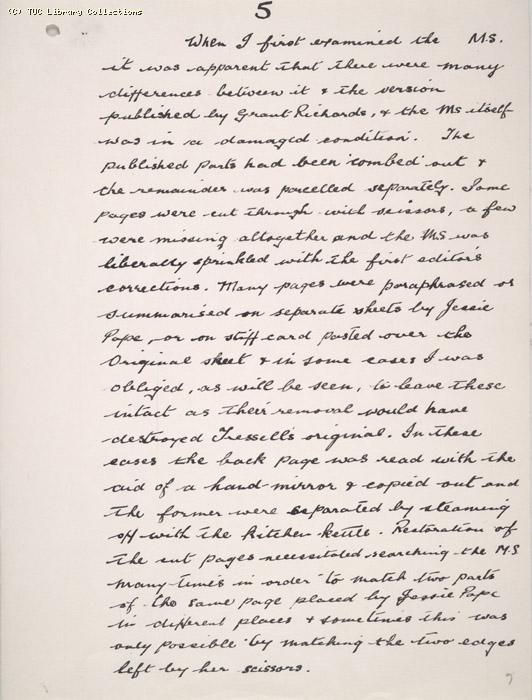 (C) TUC Library Collections
5
When I first examined the M.S.
it was apparent that there were many
differences between it & the version
published by Grant Richards, & the Ms itself
was in a damaged condition. The
published parts had been 'combed' out &
the remainder was parcelled separately. Some
pages were cut through with scissors, a few
were missing altogether and the MS was
liberally sprinkled with the first editor's
corrections. Many pages were paraphrased or
summarised on separate sheets by Jessie
Pope, or on stiff card pasted over the
Original sheet & in some cases I was
obliged, as will be seen, to leave these
intact as their removal would have
destroyed Tressell's original. In these
cases the back page was read with the
aid of a hand-mirror & copied out and
the former were separated by steaming
off with the kitchen kettle. Restoration of
the cut pages necessitated searching the MS
many times in order to match two parts
of the same page placed by Jessie Pope
in different places & sometimes this was
only possible by matching the two edges
left by her scissors.